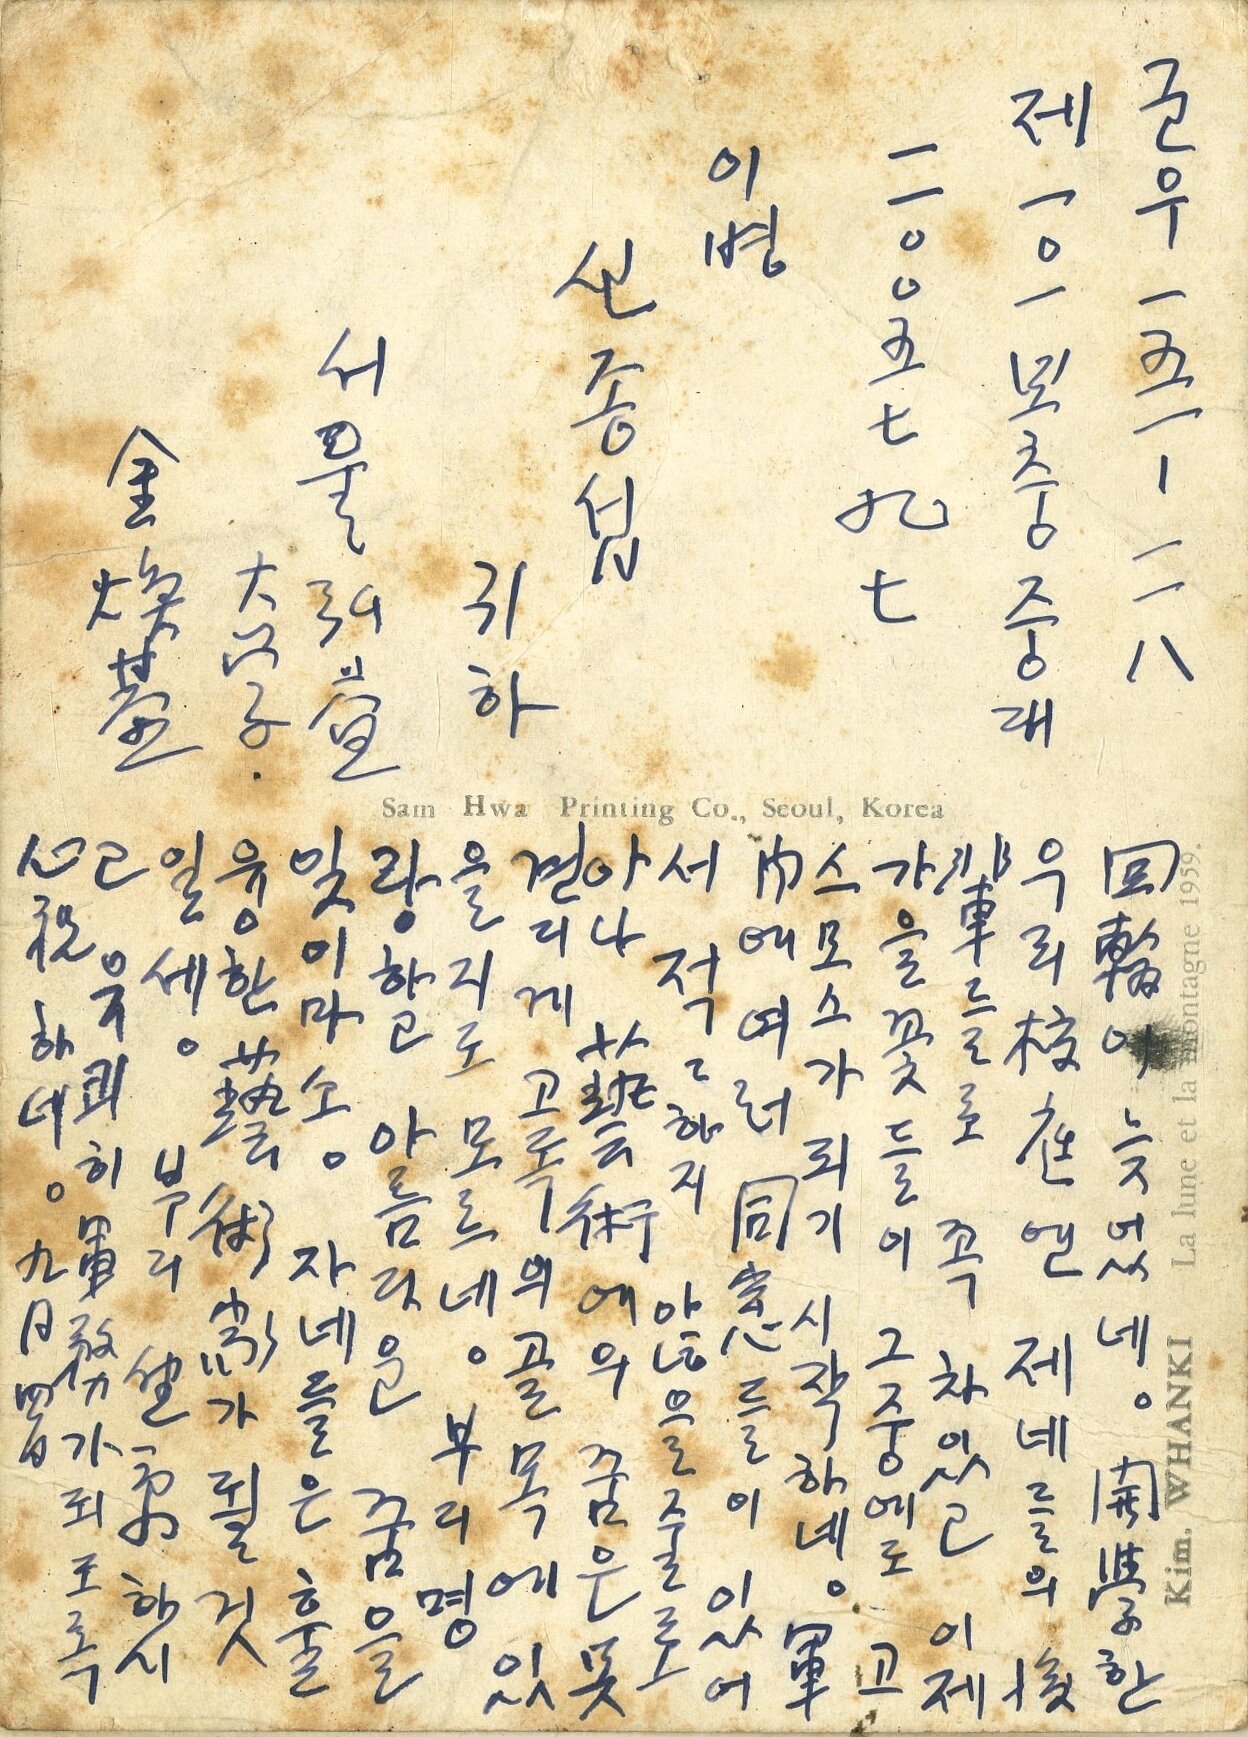 군우 一五一 | 二八
제 一〇一 보충중대
一一〇〇五七九七
이병
신종섭
귀하
서울 弘益
大学.
金煥基
Sam Hwa Printing Co., Seoul, Korea
回翰이 늦었네。 開学한
우리 校庭엔 제네들의 後
輩들로 꼭 차있고 이제
가을꽃들이 그중에도 고
스모스가 피기 시작하네。 軍
内에 여러 同窓들이 있어
서 적적하지 않을줄로
아나 藝術에의 꿈은 못
견디게 고독의 골목에 있
을지도 모르네。 부리 명
랑하고 아름다운 꿈을
잊이마소。 자네들은 훌
융한 藝術家가 될 것
일세。 부디 健勇하시
고 유쾌히 軍務가 되도록
心祝하네。 九月 四日
Kim. WHANKI La lune et la montagne 1959.